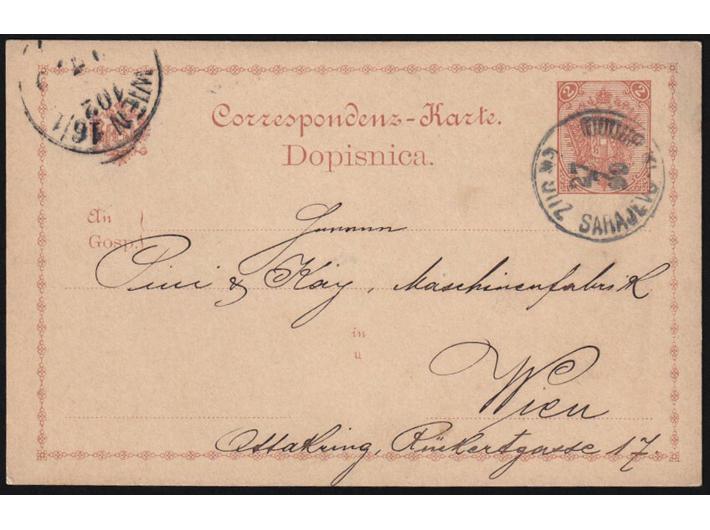 WIEN 16/1
102
Correspondenz-Karte.
Dopisnica.
2 2
SARAJEVO
27
96
An
Gosp.
Herren
Pini & Kay, Maschinenfabrik
in
u
Wien
Ottakring, Rückertgasse 17.